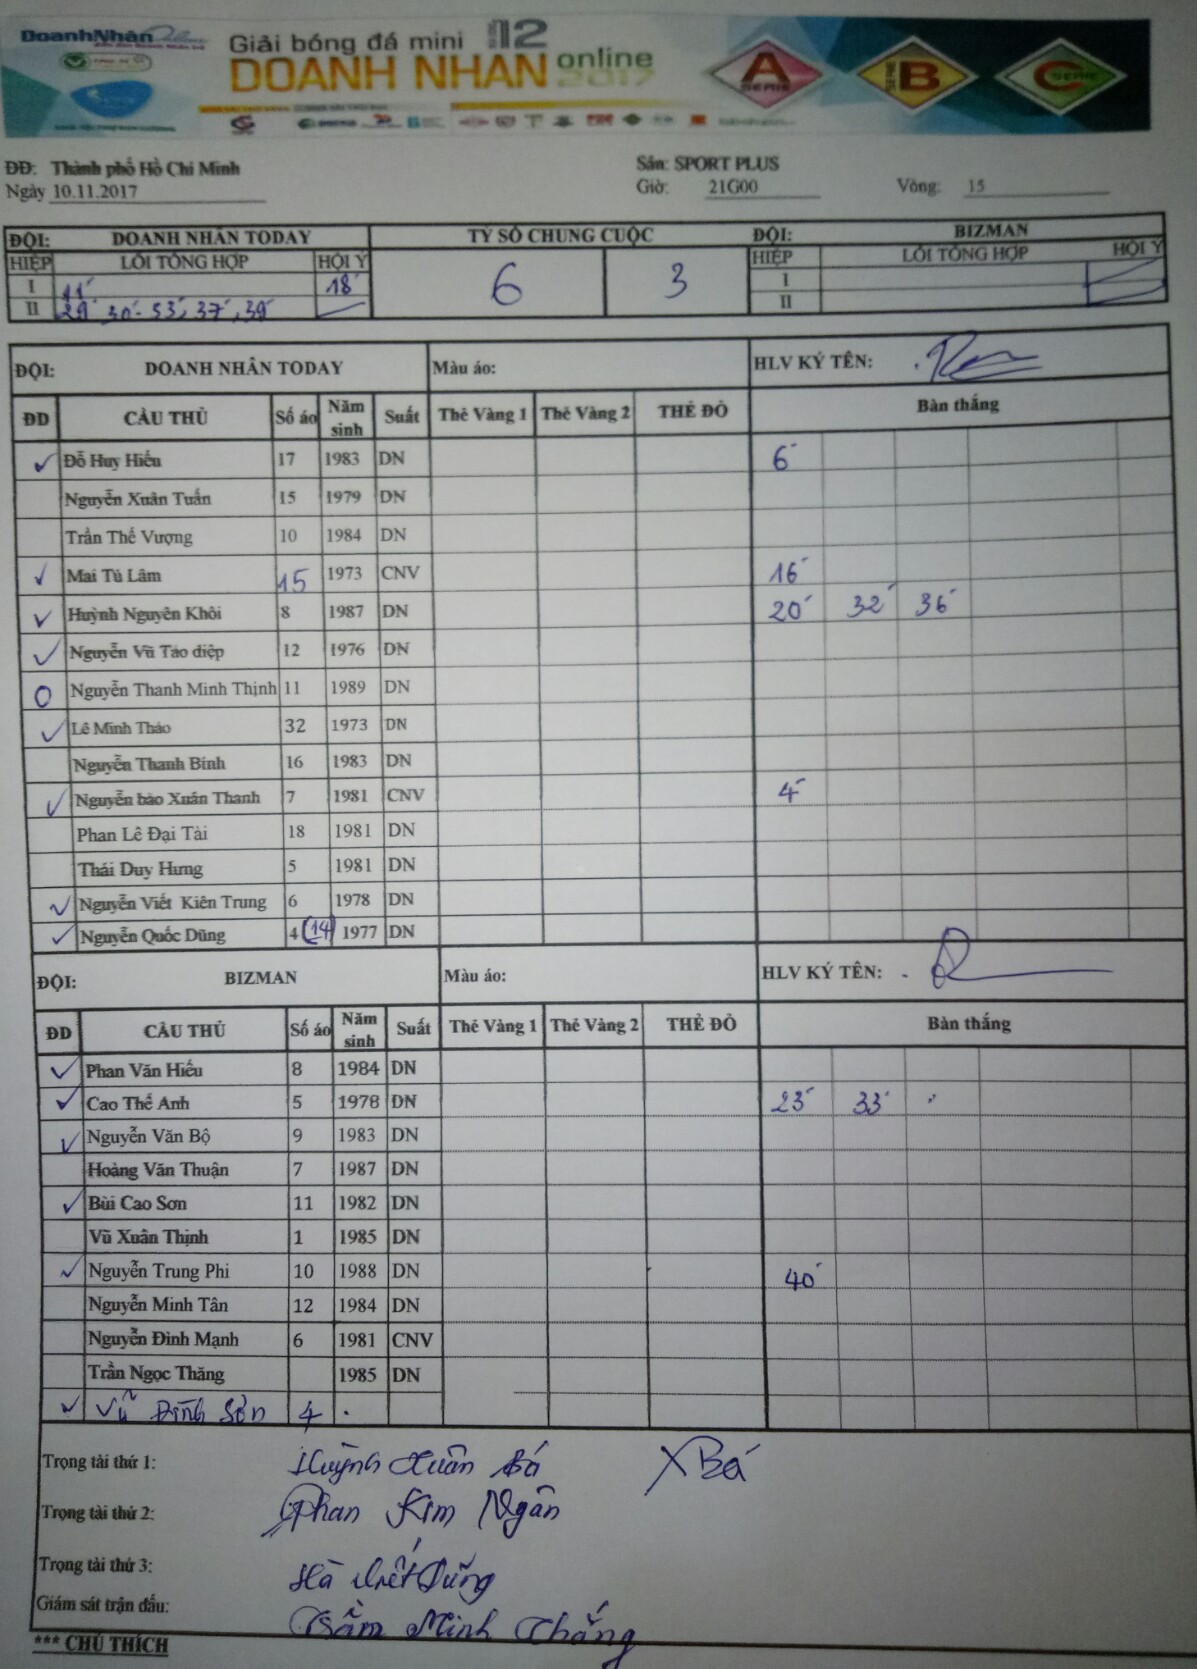 DoanhNhân
Giải bóng đá mini 12
DOANH NHAN online 2017
A SERIE
SERIE B
C SERIE
ĐĐ: Thành phố Hồ Chí Minh Sân: SPORT PLUS
Ngày 10.11.2017 Giờ: 21G00 Vòng: 15
ĐỘI: DOANH NHÂN TODAY TỶ SỐ CHUNG CUỘC ĐỘI: BIZMAN
HIỆP LỖI TỔNG HỢP HỘI Ý 6 3 HIỆP LỖI TỔNG HỢP HỘI Ý
I 11' 18' I
II 29' 30' 33' 37', 39' II
ĐỘI: DOANH NHÂN TODAY Màu áo: HLV KÝ TÊN:
ĐD CẦU THỦ Số áo Năm sinh Suất Thẻ Vàng 1 Thẻ Vàng 2 THẺ ĐỎ Bàn thắng
✓ Đỗ Huy Hiếu 17 1983 DN 6'
Nguyễn Xuân Tuấn 15 1979 DN
Trần Thế Vượng 10 1984 DN
✓ Mai Tú Lâm 15 1973 CNV 16'
✓ Huỳnh Nguyên Khôi 8 1987 DN 20' 32' 36'
✓ Nguyễn Vũ Tảo diệp 12 1976 DN
O Nguyễn Thanh Minh Thịnh 11 1989 DN
✓ Lê Minh Thảo 32 1973 DN
Nguyễn Thanh Bình 16 1983 DN
✓ Nguyễn bảo Xuân Thanh 7 1981 CNV 4'
Phan Lê Đại Tài 18 1981 DN
Thái Duy Hưng 5 1981 DN
✓ Nguyễn Viết Kiên Trung 6 1978 DN
✓ Nguyễn Quốc Dũng 4 (14) 1977 DN
ĐỘI: BIZMAN Màu áo: HLV KÝ TÊN:
ĐD CẦU THỦ Số áo Năm sinh Suất Thẻ Vàng 1 Thẻ Vàng 2 THẺ ĐỎ Bàn thắng
✓ Phan Văn Hiếu 8 1984 DN
✓ Cao Thế Anh 5 1978 DN 23' 33'
✓ Nguyễn Văn Bộ 9 1983 DN
Hoàng Văn Thuận 7 1987 DN
✓ Bùi Cao Sơn 11 1982 DN
Vũ Xuân Thịnh 1 1985 DN
✓ Nguyễn Trung Phi 10 1988 DN 40'
Nguyễn Minh Tân 12 1984 DN
Nguyễn Đình Mạnh 6 1981 CNV
Trần Ngọc Thăng 1985 DN
✓ Vũ Đình Sơn 4
Trọng tài thứ 1: Huỳnh Xuân Bá XBá
Trọng tài thứ 2: Phan Kim Ngân
Trọng tài thứ 3: Hà Việt Dũng
Giám sát trận đấu: Trầm Minh Thắng
*** CHÚ THÍCH